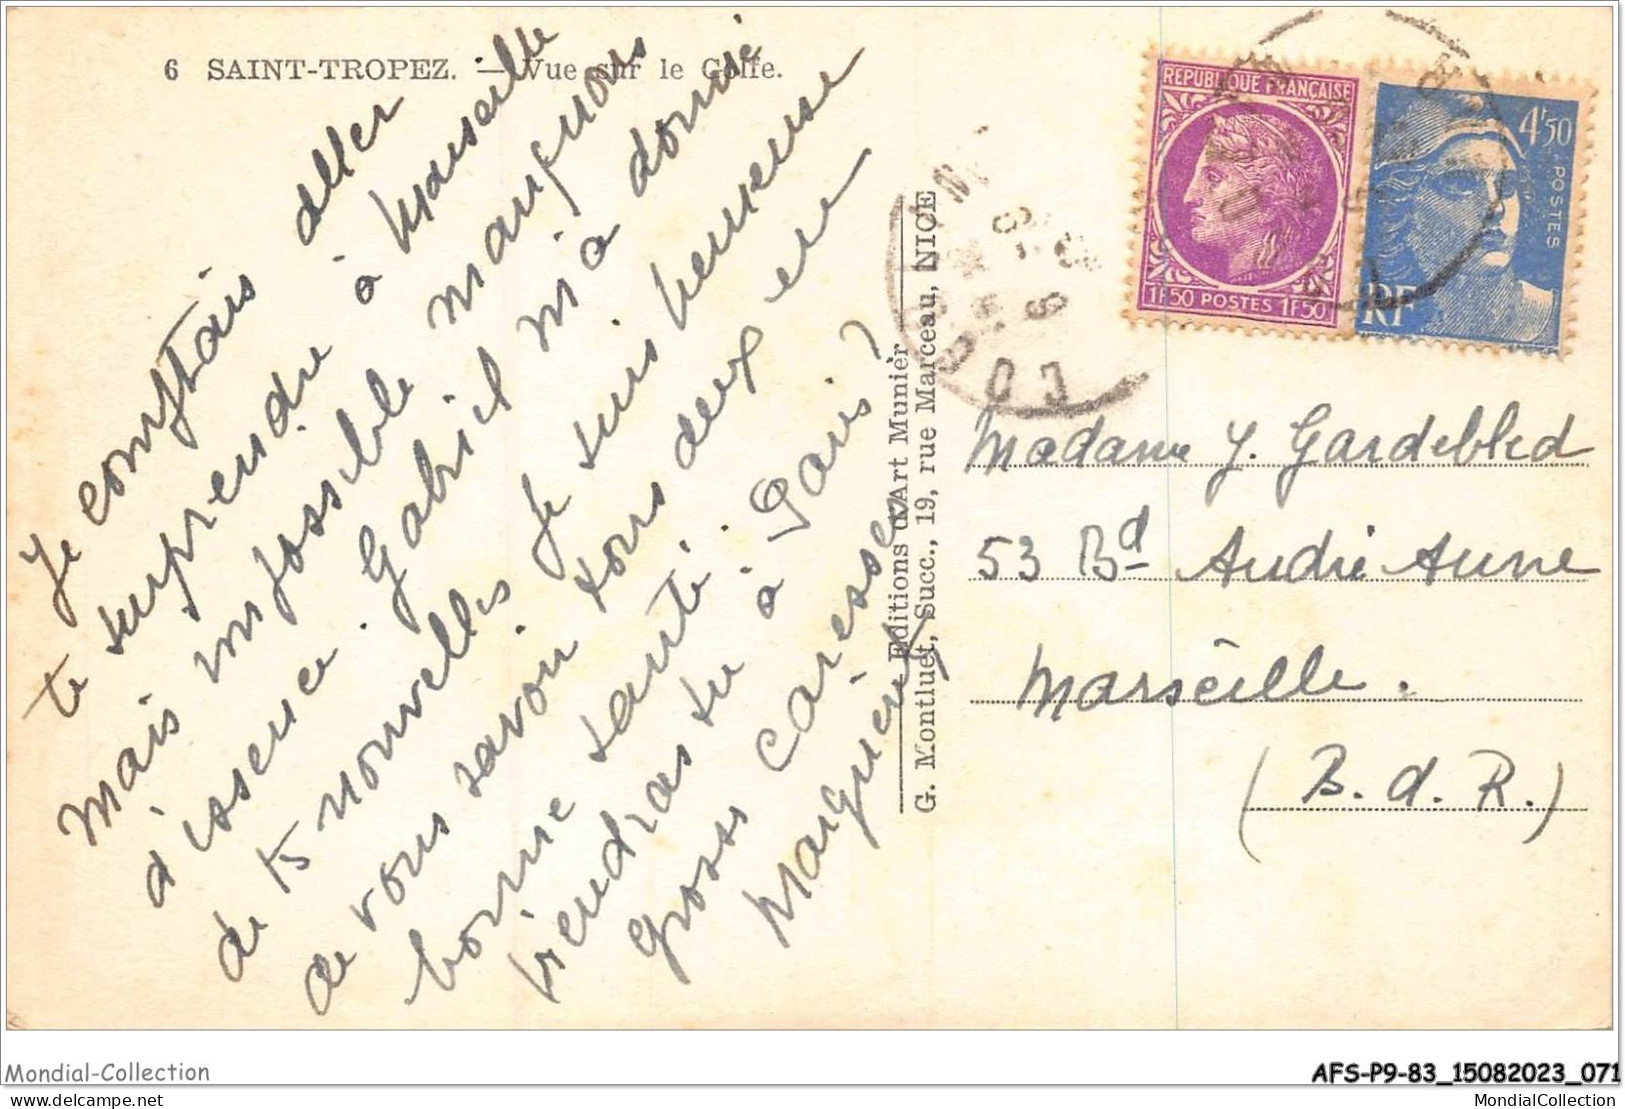 6 SAINT-TROPEZ. — Vue sur le Golfe.
Je comptais aller
te surprendre à Marseille
mais impossible manquons
d'essence. Gabriel m'a donné
de ts nouvelles je suis heureuse
de vous savoir tous deux en
bonne santé. 
viendras tu à Paris?
grosses caresses
Marguerite
Editions d'Art Munier
G. Montluet, Succ., 19, rue Marceau, NICE
REPUBLIQUE FRANÇAISE
1F50 POSTES 1F50
4F50
POSTES
RF
Madame J. Gardebled
53 Bd André Aune
Marseille.
(B. d. R.)
Mondial-Collection
AFS-P9-83_15082023_071
delcampe.net
MondialCollection